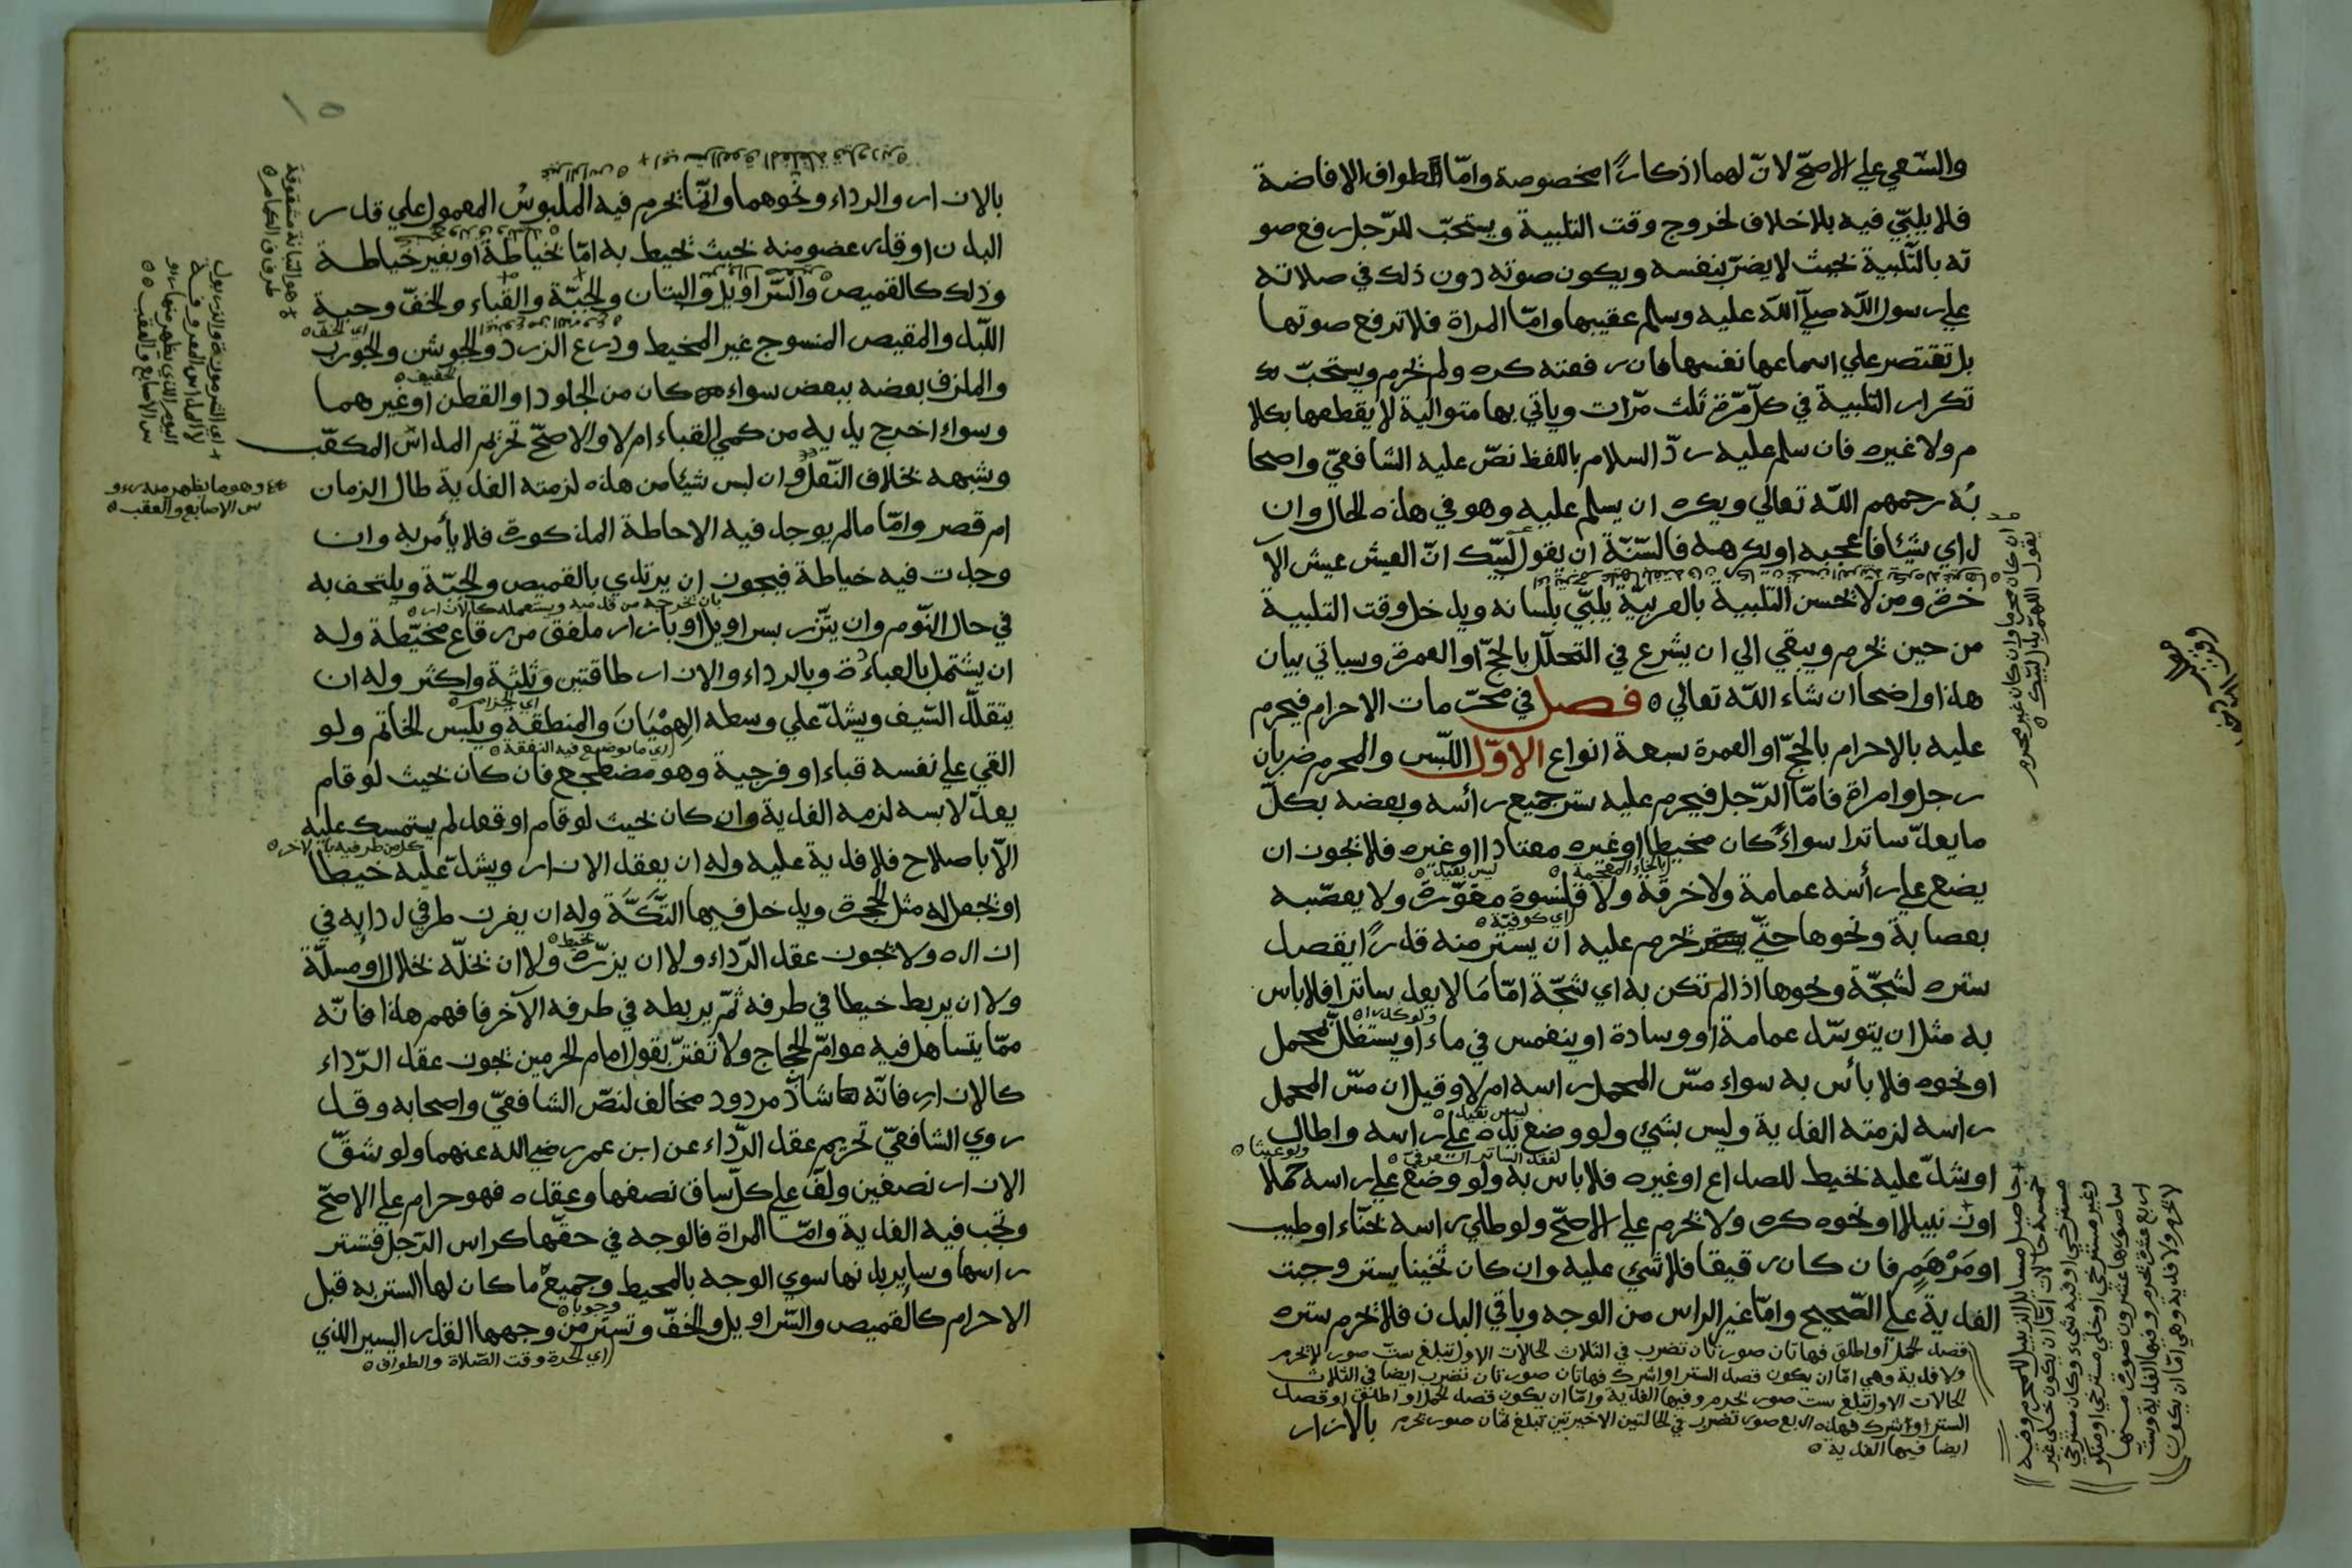 والسّعي علي الاصحّ لانّ لهما اذكارًا مخصوصة وامّا الطواف الافاضة
فلا يلبّي فيه بلا خلاف لخروج وقت التلبية ويستحبّ للرّجل رفع صو
ته بالتّلبية بحيث لا يضرّ بنفسه ويكون صوته دون ذلك في صلاته
علي رسول الله صلّي الله عليه وسلم عقيبها وامّا المراة فلا ترفع صوتها
بل تقتصر علي اسماعها نفسها فان رفعته كره ولم يحرم ويستحبّ
تكرار التلبية في كلّ مرّة ثلث مرّات وياتي بها متوالية لا يقطعها بكلا
م ولا غيره فان سلم عليه ردّ السلام باللفظ نصّ عليه الشافعيّ واصحا
به رحمهم الله تعالي ويكره ان يسلم عليه وهو في هذه الحال وان
راي شيئا فاعجبه او يكرهه فالسّنّة ان يقول لبّيك انّ العيش عيش الآ
خرة ومن لا يحسن التلبية بالعربيّة يلبّي بلسانه ويدخل وقت التلبية
من حين يحرم ويبقي الي ان يشرع في التحلّل بالحجّ او العمرة وسياتي بيان
هذا واضحا ان شاء الله تعالي ه فصل في محرّمات الاحرام فيحرم
عليه بالاحرام بالحجّ او العمرة سبعة انواع الاوّل اللّبس والمحرم ضربان
رجل وامراة فامّا الرّجل فيحرم عليه ستر جميع رأسه وبعضه بكلّ
ما يعدّ ساترا سواءً كان مخيطا او غيره معتادا او غيره فلا يجوز ان
بالخاء المعجمة ه ليس بقيد ه
يضع علي رأسه عمامة ولا خرقة ولا قلنسوة مقوّرة ولا يعصّبه
اي كوفيّة ه
بعصابة ونحوها حتّي يحرم عليه ان يستر منه قدرًا يقصد
ستره لشجّة ونحوها اذا لم تكن به اي شجّة امّا مَا لا يعد ساترا فلا باس
به مثل ان يتوسّد عمامة او وسادة او ينغمس في ماء او يستظلّ بمحمل
او نحوه فلا بأس به سواء مسّ المحمل راسه ام لا وقيل ان مسّ المحمل
ليس بقيد ه
راسه لزمته الفدية وليس بشئ ولو وضع يده علي راسه واطال
او شدّ عليه بخيط للصداع او غيره فلا باس به ولو وضع علي راسه حملا
او زنبيلا او نحوه كره ولا يحرم علي الاصحّ ولو طلي راسه بحنّاء او طيب
او مَرْهَمٍ فان كان رقيقا فلا شئ عليه وان كان ثخينا يستر وجبت
الفدية علي الصّحيح وامّا غير الراس من الوجه وباقي البدن فلا يحرم ستره
قصد الحمل او اطلق فهاتان صورتان تضرب في الثلاث الحالات الاول تبلغ ستّ صور لا تحرم
ولا فدية وهي امّا ان يكون قصد الستر او اشرك فهاتان صورتان تضرب ايضا في الثلاث
الحالات الاول تبلغ ست صور تحرم وفيها الفدية وامّا ان يكون قصد الحمل او اطلق او قصد
الستر او اشرك فهذه اربع صور تضرب في الحالتين الاخيرتين تبلغ ثمان صور تحرم
ايضا فيها الفدية ه
بالازار
ان كان محرما وان كان غير محرم
يقول اللهمّ
بالازار والرداء ونحوهما وانّما يحرم فيه الملبوسُ المعمول علي قدر
البدن او قدر عضو منه بحيث يحيط به امّا بخياطة او بغير خياطة
وذلك كالقميص والسّراويل والتبان والجبّة والقباء والخفّ وجبة
اي الخفّ ه
اللّبد والمقيص المنسوج غير المخيط ودرع الزرد والجوشن والجورب
والملزق بعضه ببعض سواء كان من الجلود او القطن او غيرهما
وسواء اخرج يديه من كمي القباء ام لا والاصحّ تحريم المداس المكعّب
وشبهه بخلاف النّعل وان لبس شيئا من هذه لزمته الفدية طال الزمان
ام قصر وامّا ما لم يوجد فيه الاحاطة المذكورة فلا بأمر به وان
وجدت فيه خياطة فيجوز ان يرتدي بالقميص والجبّة ويلتحف به
بان يخرجه من قدميه ويستعمله كالازار ه
في حال النّوم وان يتّزر بسراويل او بازار ملفق من رقاع مخيّطة وله
ان يشتمل بالعباءة وبالرداء والازار طاقتين وثلثة واكثر وله ان
اي الحزام ه
يتقلّد السّيف ويشدّ علي وسطه الهِمْيَانَ والمنطقة ويلبس الخاتم ولو
اي ما يوضع فيه النفقة ه
القي علي نفسه قباء او فرجية وهو مضطجع فان كان بحيث لو قام
يعدّ لابسه لزمه الفدية وان كان بحيث لو قام او قعد لم يستمسك عليه
كل من طرفيه بالاخر ه
الّا باصلاح فلا فدية عليه وله ان يعقد الازار ويشدّ عليه خيطا
او يجعل له مثل الحجرة ويدخل فيها التّكّة وله ان يغرز طرفي ردايه في
ازاره ولا يجوز عقد الرّداء ولا ان يزرّه ولا ان يخلّه بخلال او مسلّة
ولا ان يربط خيطا في طرفه ثمّ يربطه في طرفه الآخر فافهم هذا فانّه
ممّا يتساهل فيه عوامّ الحجاج ولا تغترّ بقول امام الحرمين يجوز عقد الرّداء
كالازارِ فانّه شاذّ مردود مخالف لنصّ الشافعيّ واصحابه وقد
روي الشافعيّ تحريم عقد الرّداء عن ابن عمر رضي الله عنهما ولو شقّ
الازار نصفين ولفّ علي كلّ ساق نصفها وعقده فهو حرام علي الاصحّ
وتجب فيه الفدية وامّا المراة فالوجه في حقّها كراس الرّجل فتستر
راسها وساير بدنها سوي الوجه بالمخيط وجميع ما كان لها الستر به قبل
وجوبا ه
الاحرام كالقميص والسّراويل والخفّ وتستر من وجهها القدر اليسير الذي
اي الحرة وقت الصّلاة والطواف ه
وهو ما يظهر منه رءو
س الاصابع والعقب ه
هو التبانة مشقوقة